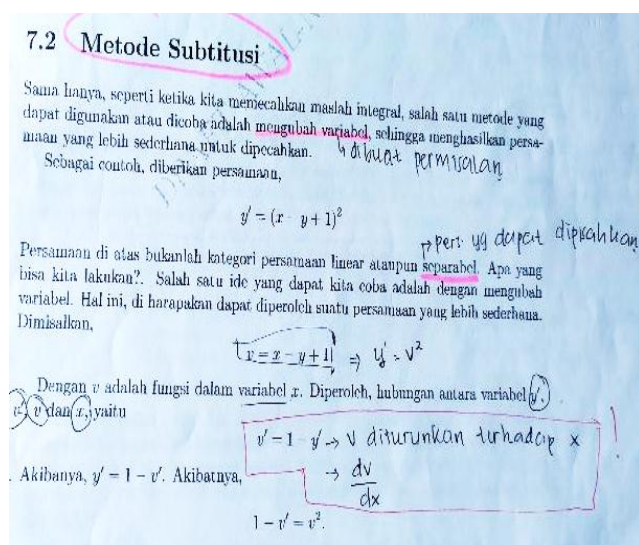 7.2 Metode Subtitusi
Sama halnya, seperti ketika kita memecahkan maslah integral, salah satu metode yang
dapat digunakan atau dicoba adalah mengubah variabel, sehingga menghasilkan persa-
maan yang lebih sederhana untuk dipecahkan.
↳ dibuat permisalan
Sebagai contoh, diberikan persamaan,
y' = (x - y + 1)²
→ pers. yg dapat dipisahkan
Persamaan di atas bukanlah kategori persamaan linear ataupun separabel. Apa yang
bisa kita lakukan?. Salah satu ide yang dapat kita coba adalah dengan mengubah
variabel. Hal ini, di harapakan dapat diperoleh suatu persamaan yang lebih sederhana.
Dimisalkan,
v = x - y + 1 ⇒ y' = v²
Dengan v adalah fungsi dalam variabel x. Diperoleh, hubungan antara variabel y',
v', v dan x, yaitu
v' = 1 - y' → v diturunkan terhadap x !
→ dv/dx
Akibanya, y' = 1 - v'. Akibatnya,
1 - v' = v².